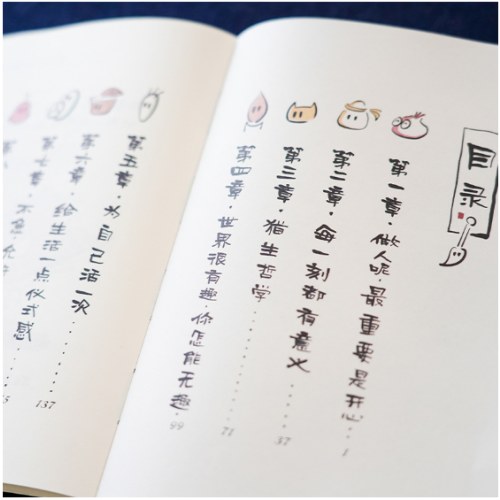 目录
第一章·做人呢,最重要是开心......1
第二章·每一刻都有意义......37
第三章·猫生哲学......71
第四章·世界很有趣,你怎能无趣.99
第五章·为自己活一次......137
第六章·给生活一点仪式感
第七章·不急